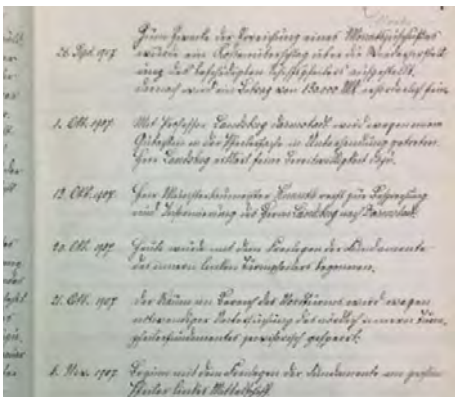 Zum Zwecke der Erreichung eines
26. Sept. 1907 wurde ein Kostenüberschlag über die Wiederherstell-
ung des beschädigten Schiffspfeilers aufgestellt,
darnach wird ein Betrag von 150000 Mk erforderlich sein.
1. Okt. 1907. Mit Professor Landsberg Darmstadt wird wegen eines
Gutachten in der Pfeilersache in Unterhandlung getreten.
Herr Landsberg erklärt seine Bereitwilligkeit dazu.
13. Okt. 1907. Herr Münsterbaumeister Knauth reist zur Besprechung
und Informierung des Herrn Landsberg nach Darmstadt.
20. Okt. 1907 Heute wurde mit dem Freilegen der Fundamente
des innern linken Turmpfeilers begonnen.
21. Okt. 1907 Der Raum im Bereich des Nordturms wird wegen
notwendiger Untersuchung des nördlich innern Turm-
pfeilerfundamentes provisorisch gesperrt.
6. Nov. 1907 Beginn mit dem Freilegen der Fundamente am
Pfeiler linkes Mittelschiff.